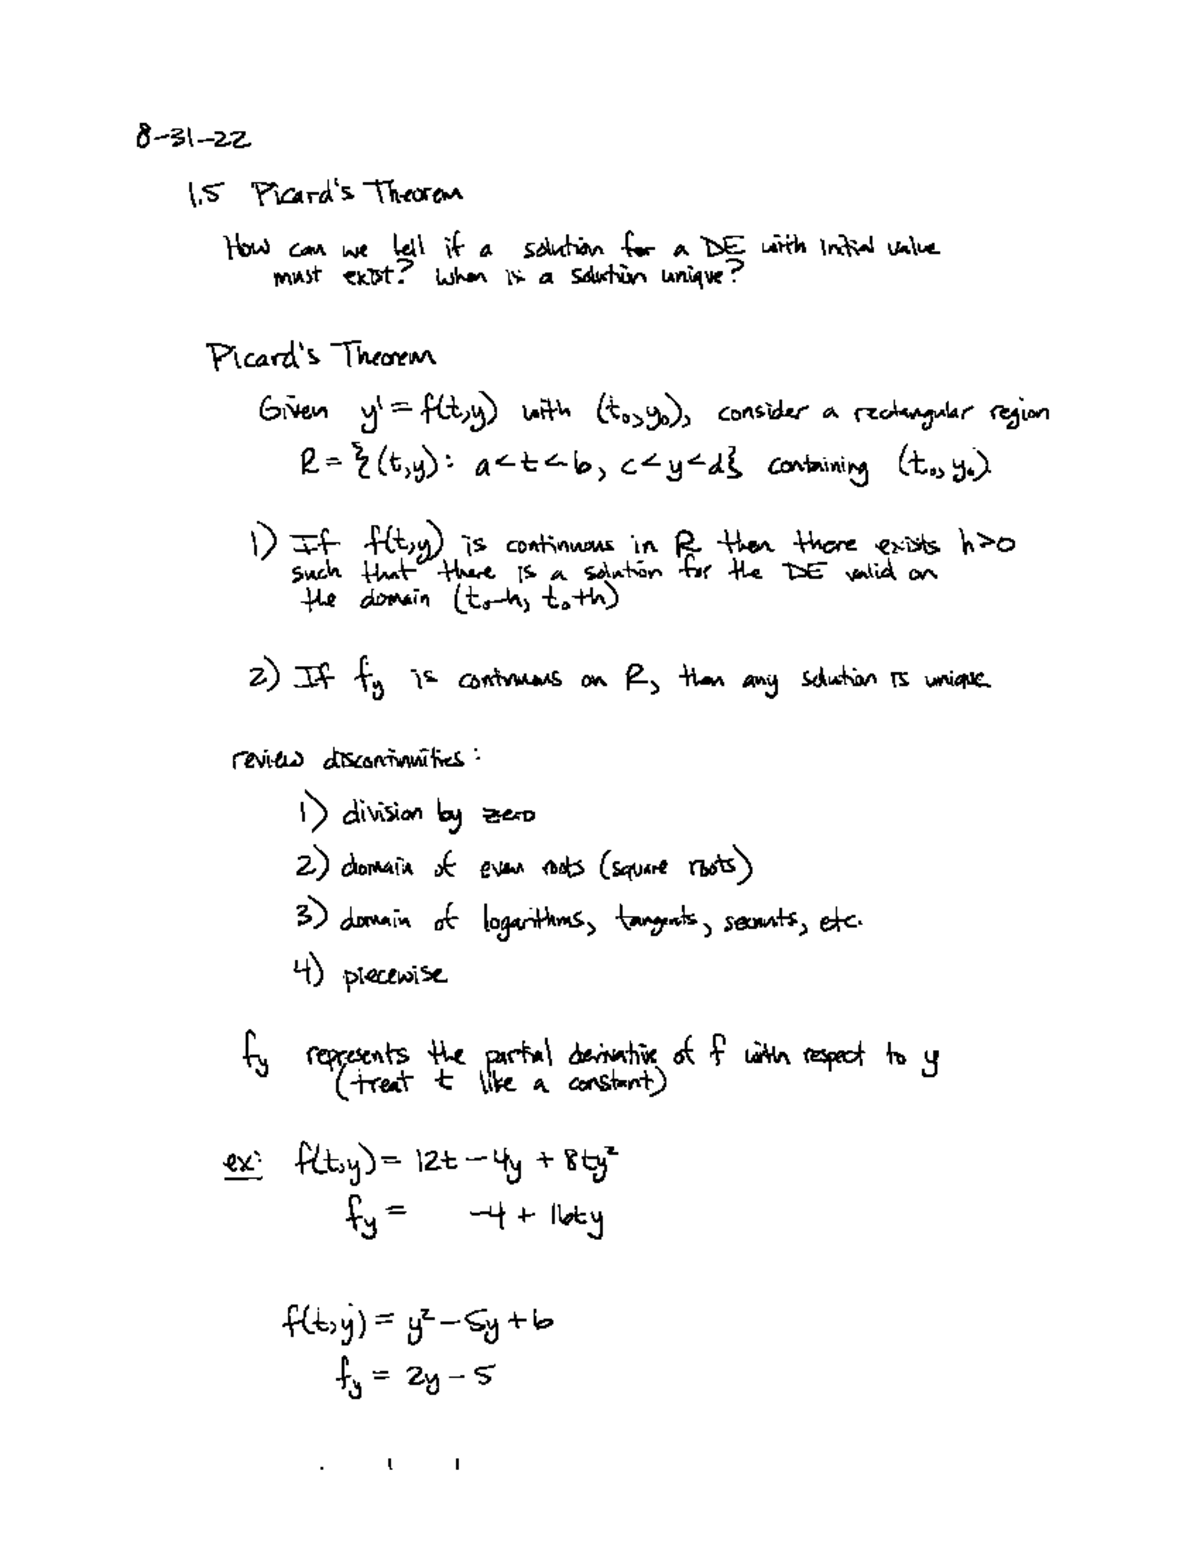 8-31-22
1.5 Picard's Theorem
How can we tell if a solution for a DE with initial value
must exist? When is a solution unique?
Picard's Theorem
Given y' = f(t,y) with (t₀,y₀), consider a rectangular region
R = {(t,y): a<t<b, c<y<d} containing (t₀,y₀).
1) If f(t,y) is continuous in R then there exists h>0
such that there is a solution for the DE valid on
the domain (t₀-h, t₀+h)
2) If fy is continuous on R, then any solution is unique
review discontinuities:
1) division by zero
2) domain of even roots (square roots)
3) domain of logarithms, tangents, secants, etc.
4) piecewise
fy represents the partial derivative of f with respect to y
(treat t like a constant)
ex: f(t,y) = 12t - 4y + 8ty²
fy = -4 + 16ty
f(t,y) = y² - 5y + 6
fy = 2y - 5